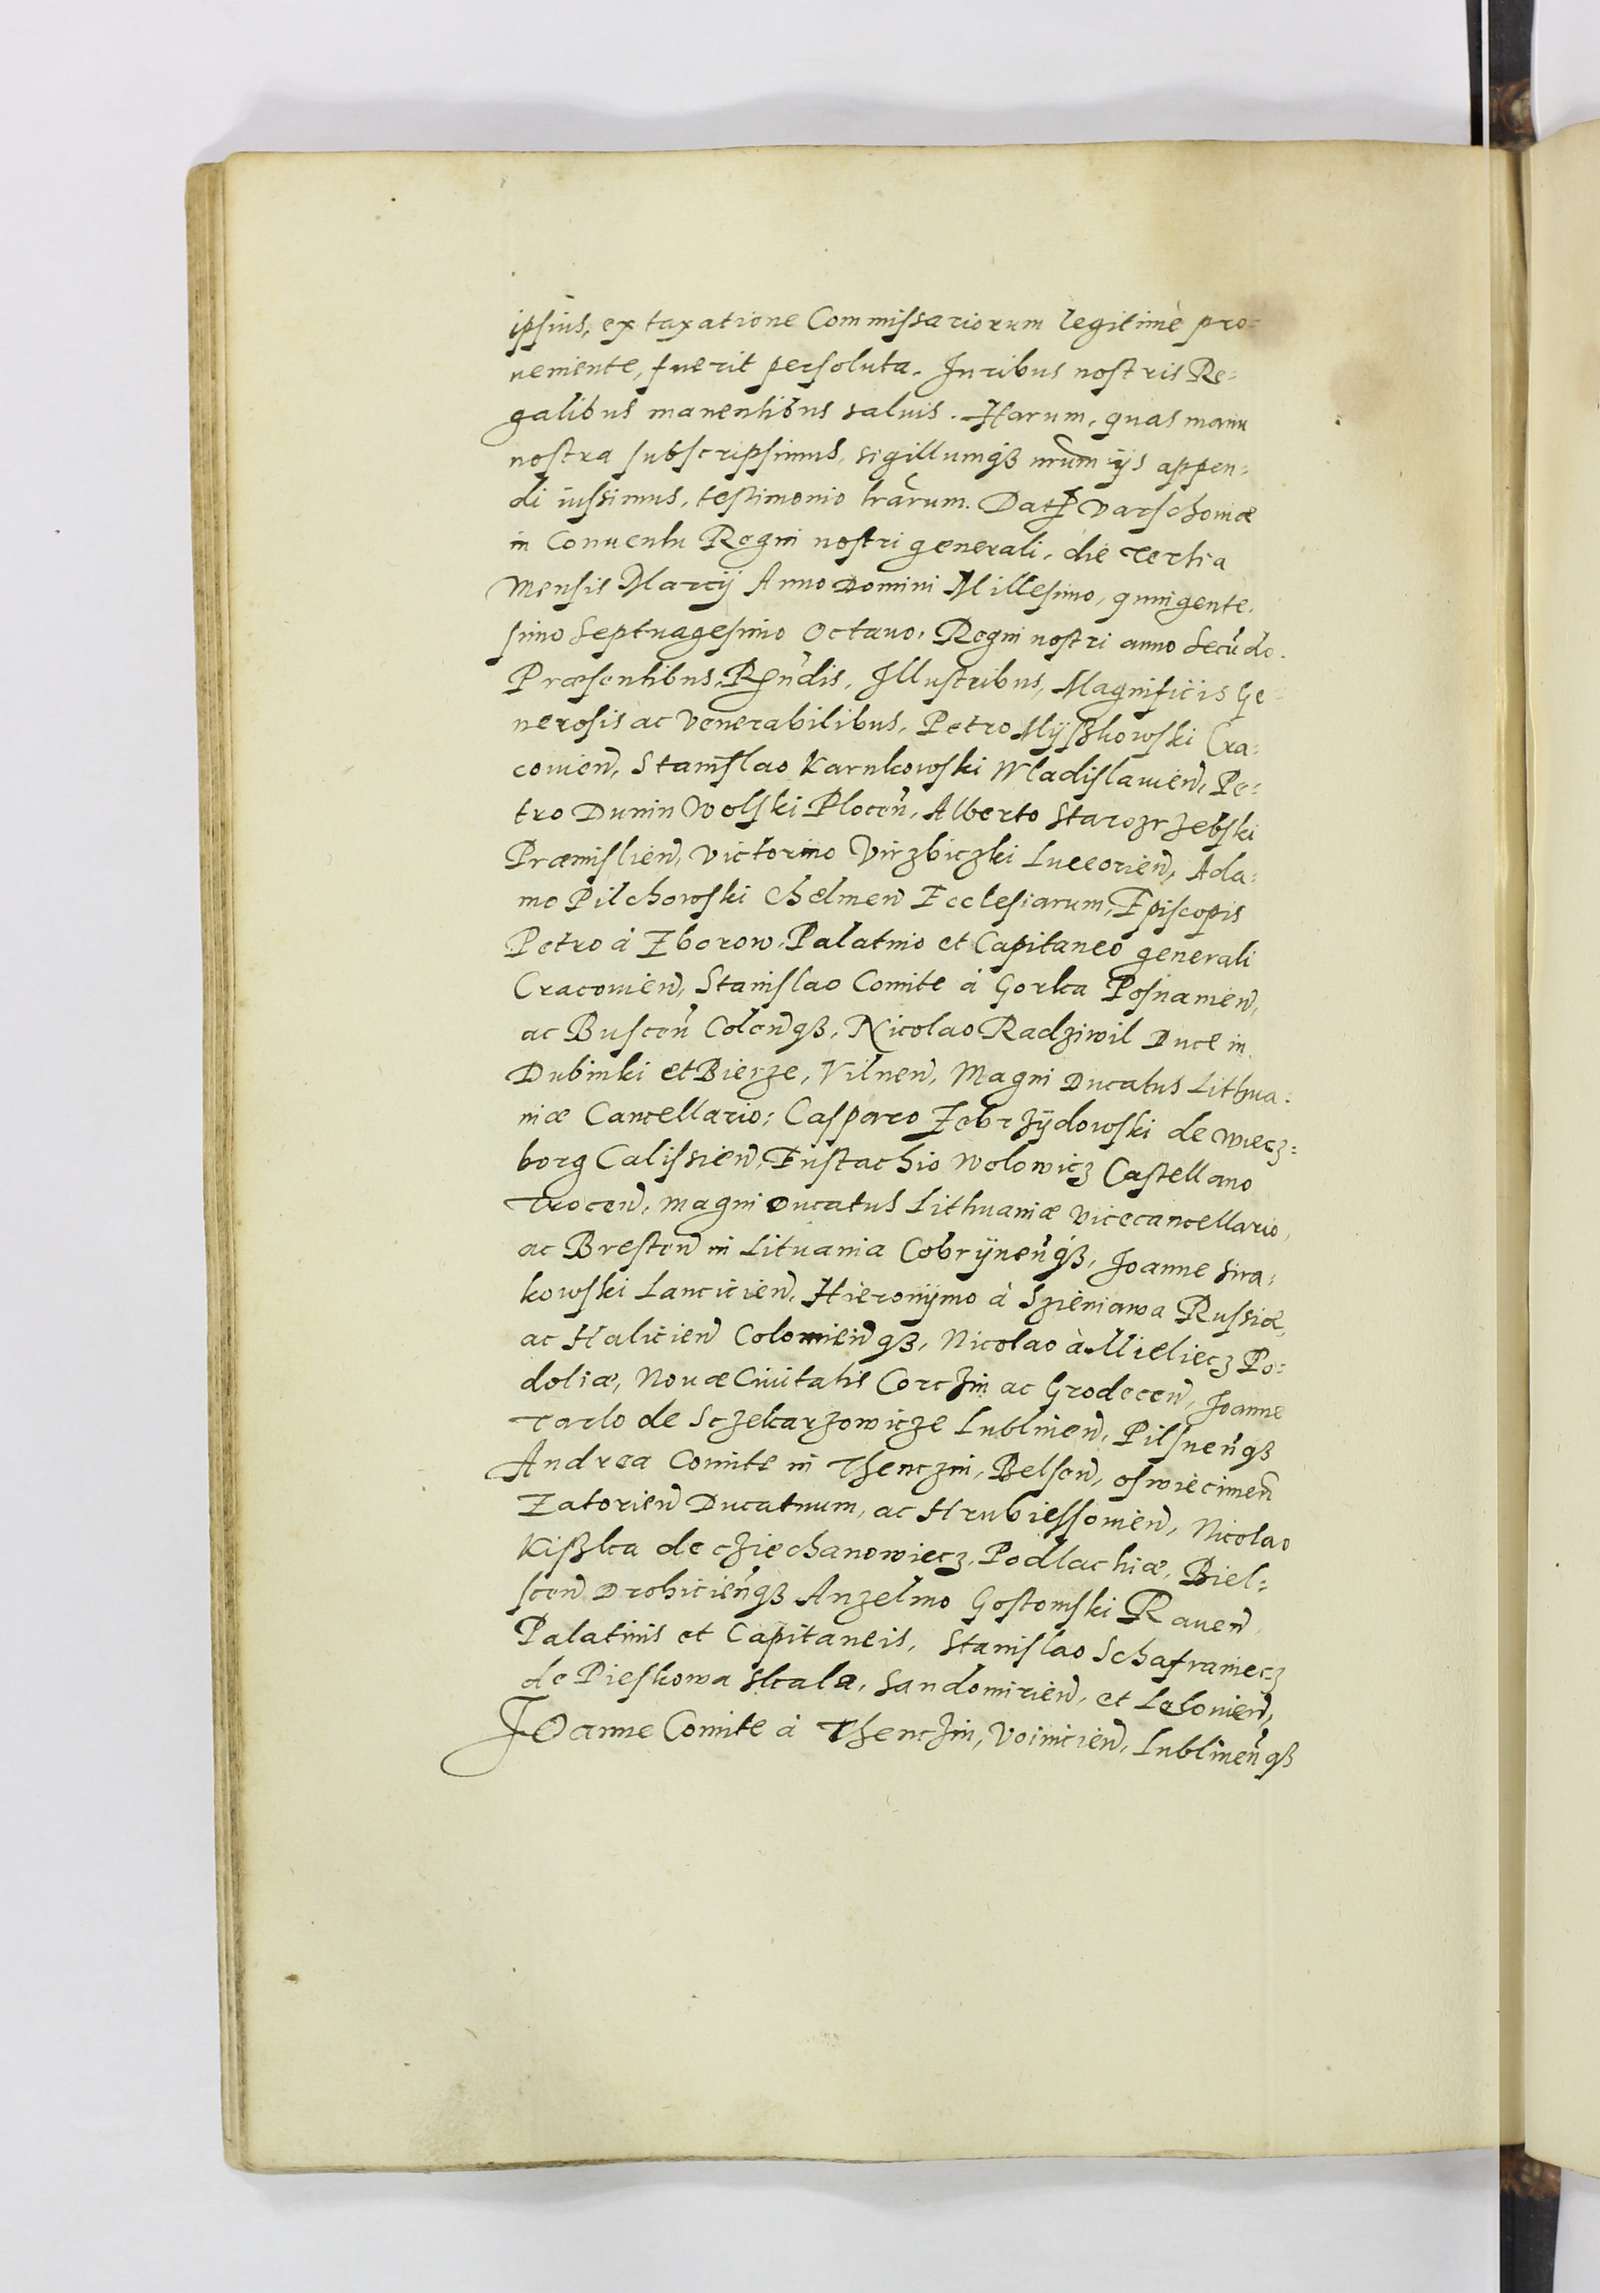 ipsius, ex taxatione Commissariorum legitimè pro=
ueniente, fuerit persoluta. Juribus nostris Re=
galibus manentibus saluis. Harum, quas manu
nostra subscripsimus, sigillumqȝ nrum̃ ijs appen=
di iussimus, testimonio lrãrum. Dat. Varschouiæ
in Conuentu Regni nostri generali, die tertia
Mensis Marcij Anno Domini Millesimo, quingente=
simo Septuagesimo Octauo, Regni nostri anno Secũdo.
Præsentibus, Rṇ̃dis, Illustribus, Magnificis Ge=
nerosis ac Venerabilibus, Petro Myszkowski Cra=
couieñ, Stanislao Karnkowski Wladislauieñ, Pe=
tro Dunin Wolski Ploceñ, Alberto Starozrzebski
Præmislieñ, Victorino Virzbiczki Luceorieñ, Ada=
mo Pilchowski Chelmeñ Ecclesiarum, Episcopis
Petro à Zborow, Palatino et Capitaneo generali
Cracouieñ, Stanislao Comite à Gorka Posnanieñ,
ac Busceñ Coleñqȝ, Nicolao Radziwil Duce in
Dubinki et Bierze, Vilneñ, Magni Ducatus Lithua=
niæ Cancellario; Casparo Zebrzÿdowski de Wiecz=
borg Calissieñ, Eustachio Wolowicz Castellano
Troceñ, Magni Ducatus Lithuaniæ Vicecancellario,
ac Bresteñ in Lituania Cobrÿneñqȝ, Joanne Sira=
kowski Lancicieñ, Hieronÿmo à Szieniawa Russiæ,
ac Halicieñ Colomieñqȝ, Nicolao à Mieliecz Po=
doliæ, Nouæ Ciuitatis Corczin ac Grodeceñ, Joanne
Tarlo de Sczekarzowicze Lublineñ, Pilsneñqȝ
Andrea Comite in Thenczin, Belseñ, Oswiecimeñ
Zatorieñ Ducatuum, ac Hrubiessouieñ, Nicolao
Kiszka de Cziechanowiecz, Podlachiæ, Biel=
sceñ Drohicieñqȝ Anzelmo Gostomski Raueñ
Palatinis et Capitaneis, Stanislao Schafraniecz
de Pieskowa Skala, Sandomirieñ, et Lelouieñ,
Joanne Comite à Thenczin, Voinicieñ, Lublineñqȝ